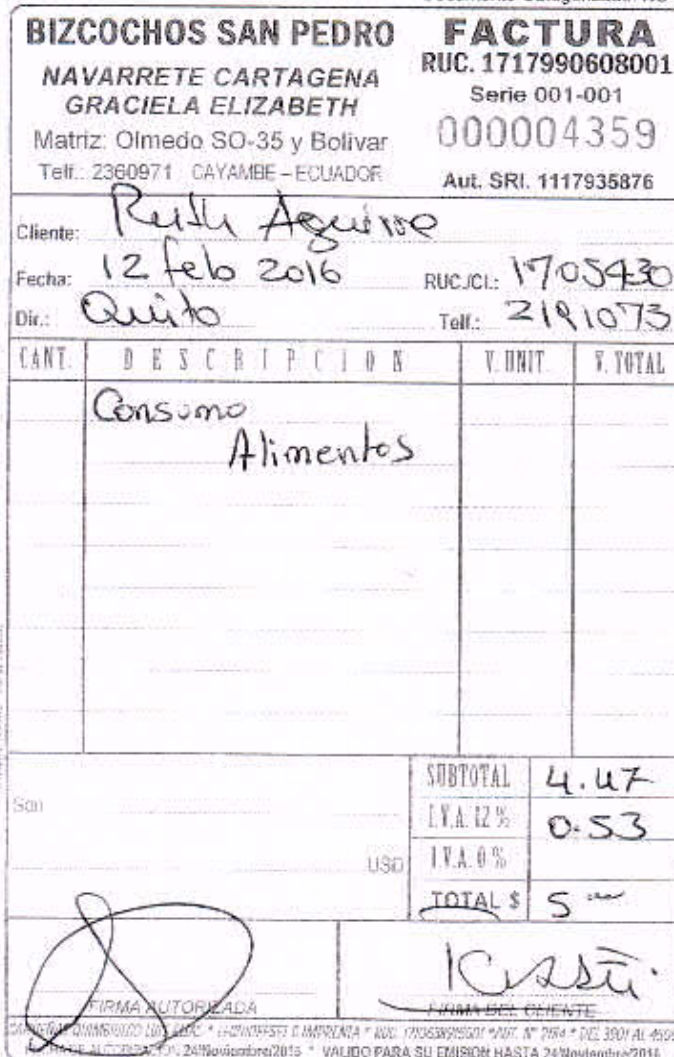 BIZCOCHOS SAN PEDRO
NAVARRETE CARTAGENA
GRACIELA ELIZABETH
Matriz: Olmedo SO-35 y Bolivar
Telf.: 2360971 CAYAMBE – ECUADOR
FACTURA
RUC. 1717990608001
Serie 001-001
000004359
Aut. SRI. 1117935876
Cliente: Ruth Aguirre
Fecha: 12 feb 2016 RUC./CI.: 1705430
Dir.: Quito Telf.: 2191073
CANT. DESCRIPCION V. UNIT. V. TOTAL
Consumo
Alimentos
SUBTOTAL 4.47
Son I.V.A. 12 % 0.53
USD I.V.A. 0 %
TOTAL $ 5
FIRMA AUTORIZADA FIRMA DEL CLIENTE
DEL 3901 AL
FECHA DE AUTORIZACION 24/Noviembre/2015 * VALIDO PARA SU EMISION HASTA 24/Noviembre/2016